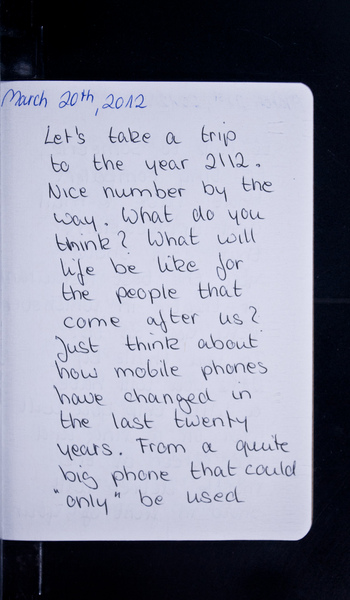 March 20th, 2012
Let's take a trip
to the year 2112.
Nice number by the
way. What do you
think? What will
life be like for
the people that
come after us?
Just think about
how mobile phones
have changed in
the last twenty
years. From a quite
big phone that could
"only" be used